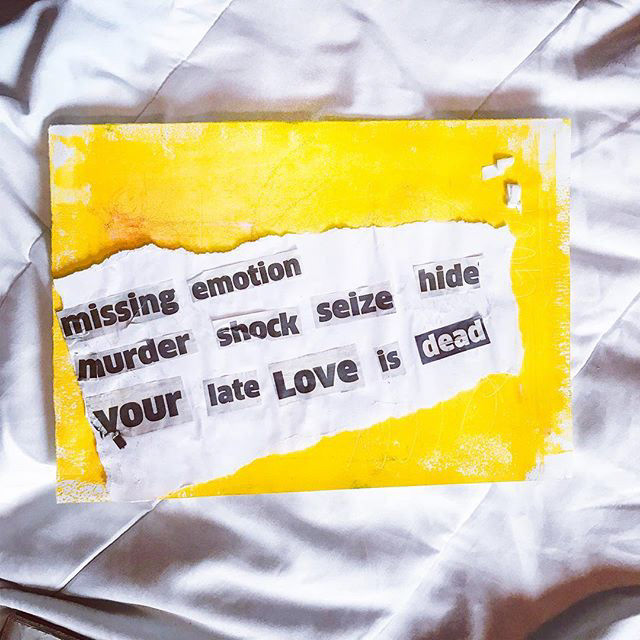 missing emotion hide
murder shock seize
your late Love is dead